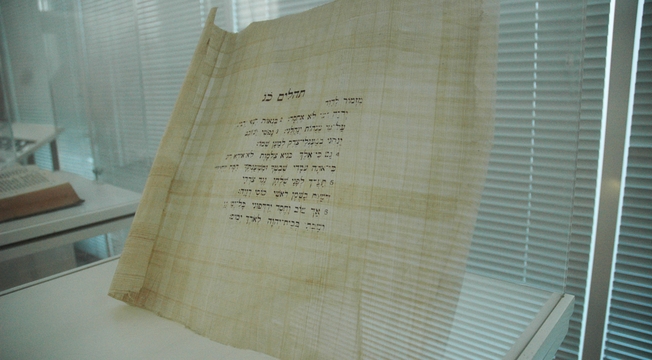 תהלים כג
מזמור לדוד
יהוה רעי לא אחסר: 2 בנאות
על מי מנוחות ינהלני: 3 נפשי
ינחני במעגלי־צדק למען שמו:
4 גם כי־אלך בגיא צלמות לא־אירא רע
כי־אתה עמדי שבטך ומשענתך
5 תערך לפני שלחן נגד צררי
דשנת בשמן ראשי כוסי רויה:
6 אך טוב וחסד ירדפוני כל־ימי
ושבתי בבית־יהוה לארך ימים: